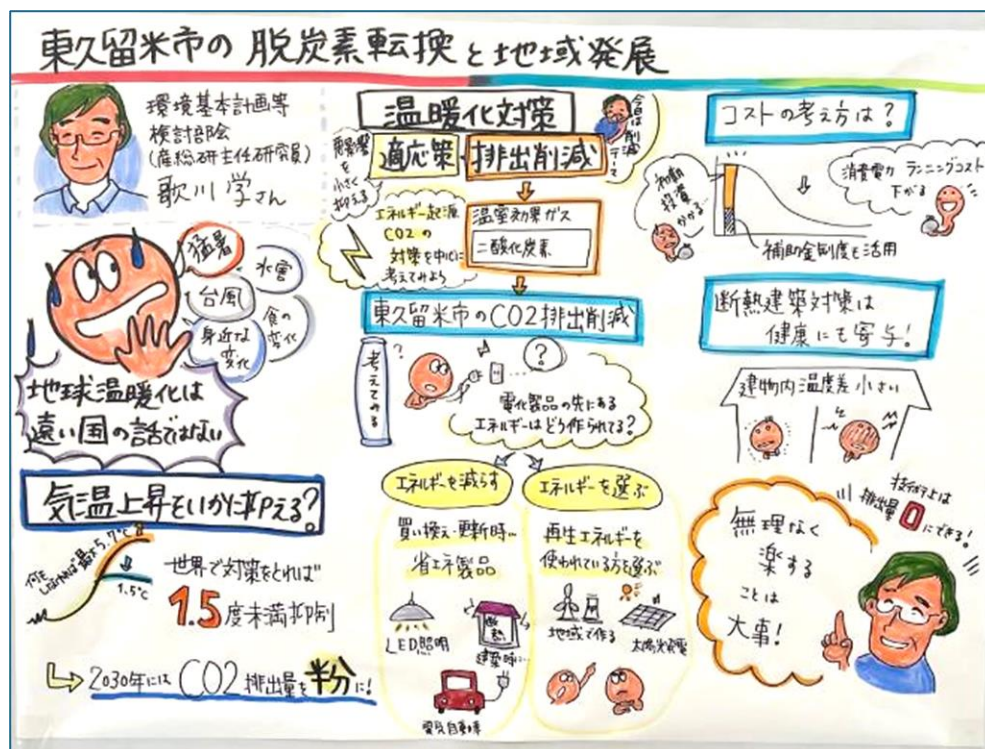 東久留米市の 脱炭素転換と地域発展
環境基本計画等
検討部会
(産総研主任研究員)
歌川 学さん
猛暑
水害
台風
食の変化
身近な変化
地球温暖化は
遠い国の話ではない
気温上昇をいかに抑える?
何もしなければ最大5.7℃
1.5℃
世界で対策をとれば
1.5度未満抑制
2030年には CO2 排出量を半分に!
温暖化対策
適応策・排出削減
悪影響を小さく抑える
今日は削減
エネルギー起源
CO2の
対策を中心に
考えてみよう
温室効果ガス
二酸化炭素
東久留米市のCO2排出削減
考えてみる
?
?
電化製品の先にある
エネルギーはどう作られてる?
エネルギーを減らす
買い換え・更新時…
省エネ製品
LED照明
断熱
建築時に…
電気自動車
エネルギーを選ぶ
再生エネルギーを
使われている方を選ぶ
地域で作る
太陽光発電
コストの考え方は?
初期投資かかる…
消費電力 ランニングコスト
下がる
補助金制度も活用
断熱建築対策は
健康にも寄与!
建物内温度差小さい
無理なく
楽する
ことは
大事!
技術上は
排出量0にできる!